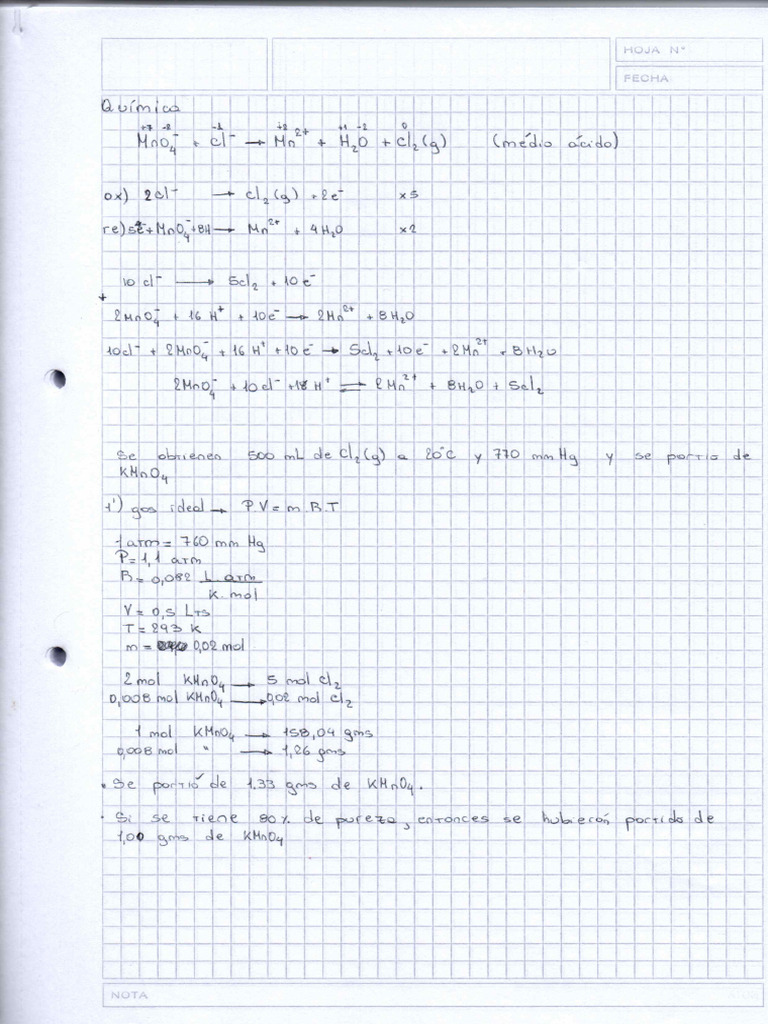 HOJA N°
FECHA
Química
+7 -2 -1 +2 +1 -2 0
MnO₄⁻ + Cl⁻ → Mn²⁺ + H₂O + Cl₂(g) (médio ácido)
ox) 2Cl⁻ → Cl₂(g) + 2e⁻ x5
re) 5e⁻ + MnO₄⁻ + 8H → Mn²⁺ + 4H₂O x2
10 Cl⁻ → 5Cl₂ + 10e⁻
+
2MnO₄⁻ + 16 H⁺ + 10e⁻ → 2Mn²⁺ + 8H₂O
10Cl⁻ + 2MnO₄⁻ + 16 H⁺ + 10e⁻ → 5Cl₂ + 10e⁻ + 2Mn²⁺ + 8H₂O
2MnO₄⁻ + 10Cl⁻ + 16 H⁺ ⇌ 2Mn²⁺ + 8H₂O + 5Cl₂
Se obtienen 500 mL de Cl₂(g) a 20°C y 770 mmHg y se partio de
KMnO₄
1') gas ideal → P.V = m.R.T
1 atm = 760 mm Hg
P = 1,1 atm
R = 0,082 L atm
K. mol
V = 0,5 Lts
T = 293 K
m = 0,02 mol
2 mol KMnO₄ → 5 mol Cl₂
0,008 mol KMnO₄ → 0,02 mol Cl₂
1 mol KMnO₄ → 158,04 gms
0,008 mol " → 1,26 gms
• Se partió de 1.33 gms de KMnO₄.
• Si se tiene 80% de pureza, entonces se hubierón partido de
1,00 gms de KMnO₄
NOTA